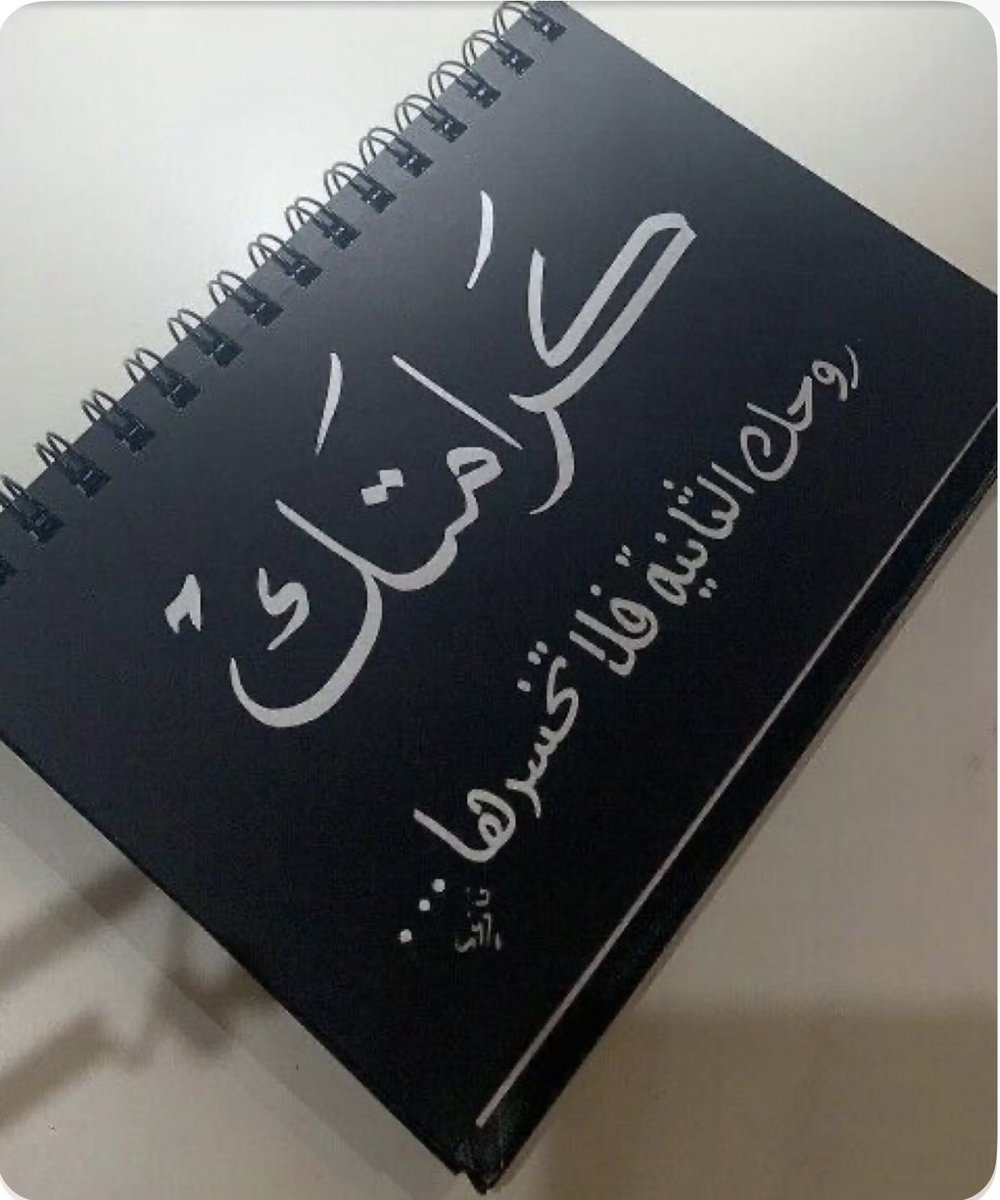 كَرامتَك
روحك الثانية فلا تخسرها...